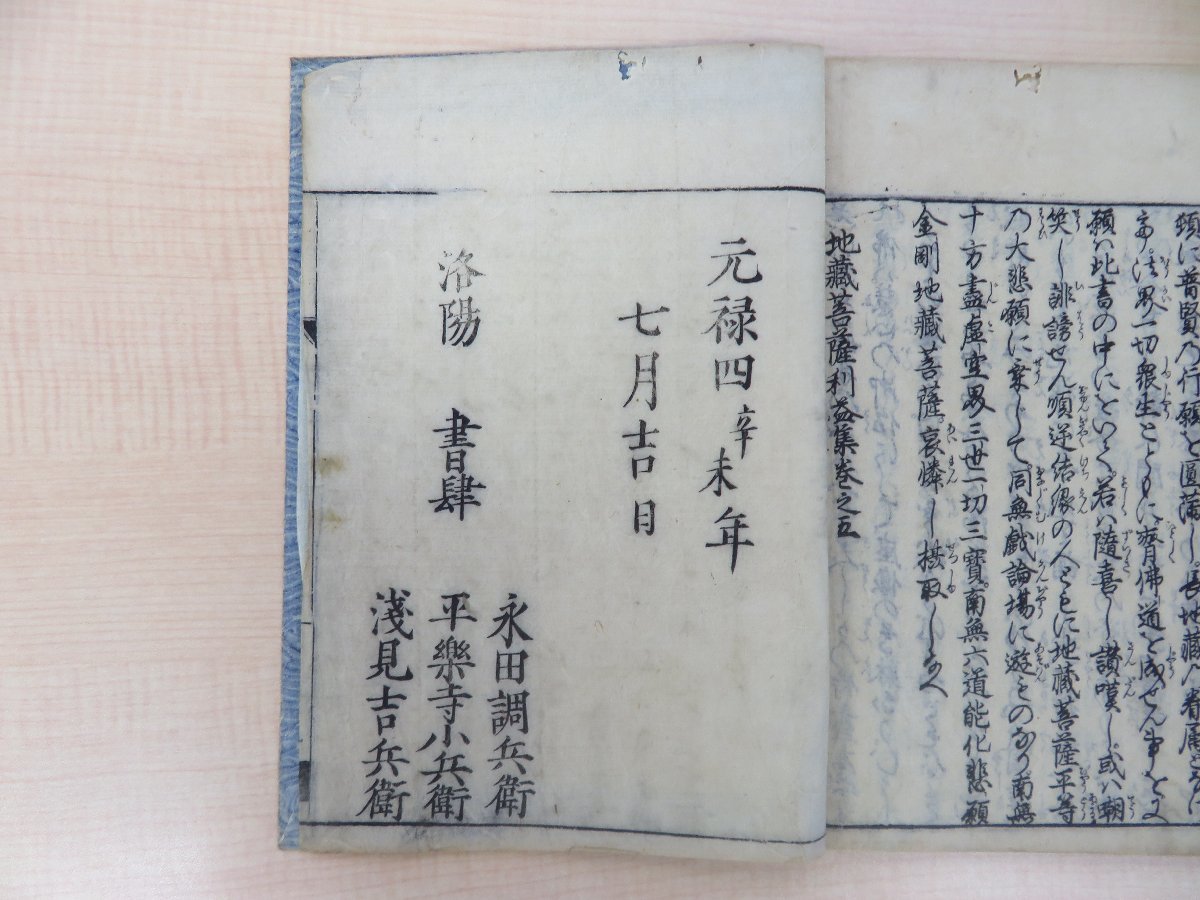 頭に普賢乃行願を圓滿し長地藏の眷屬となり
法界一切衆生とともに皆佛道を成せん事を
願ハ此書の中にをいて若ハ隨喜し讃嘆し或ハ嘲
笑し誹謗せん順逆結縁の人ともに地藏菩薩平等
乃大悲願に乘して同無戯論場に遊ものなり南無
十方盡虚空界三世一切三寶南無六道能化悲願
金剛地藏菩薩哀憐し摂取し
地藏菩薩利益集巻之五
元禄四辛未年
七月吉日
洛陽 書肆
永田調兵衛
平樂寺小兵衛
淺見吉兵衛